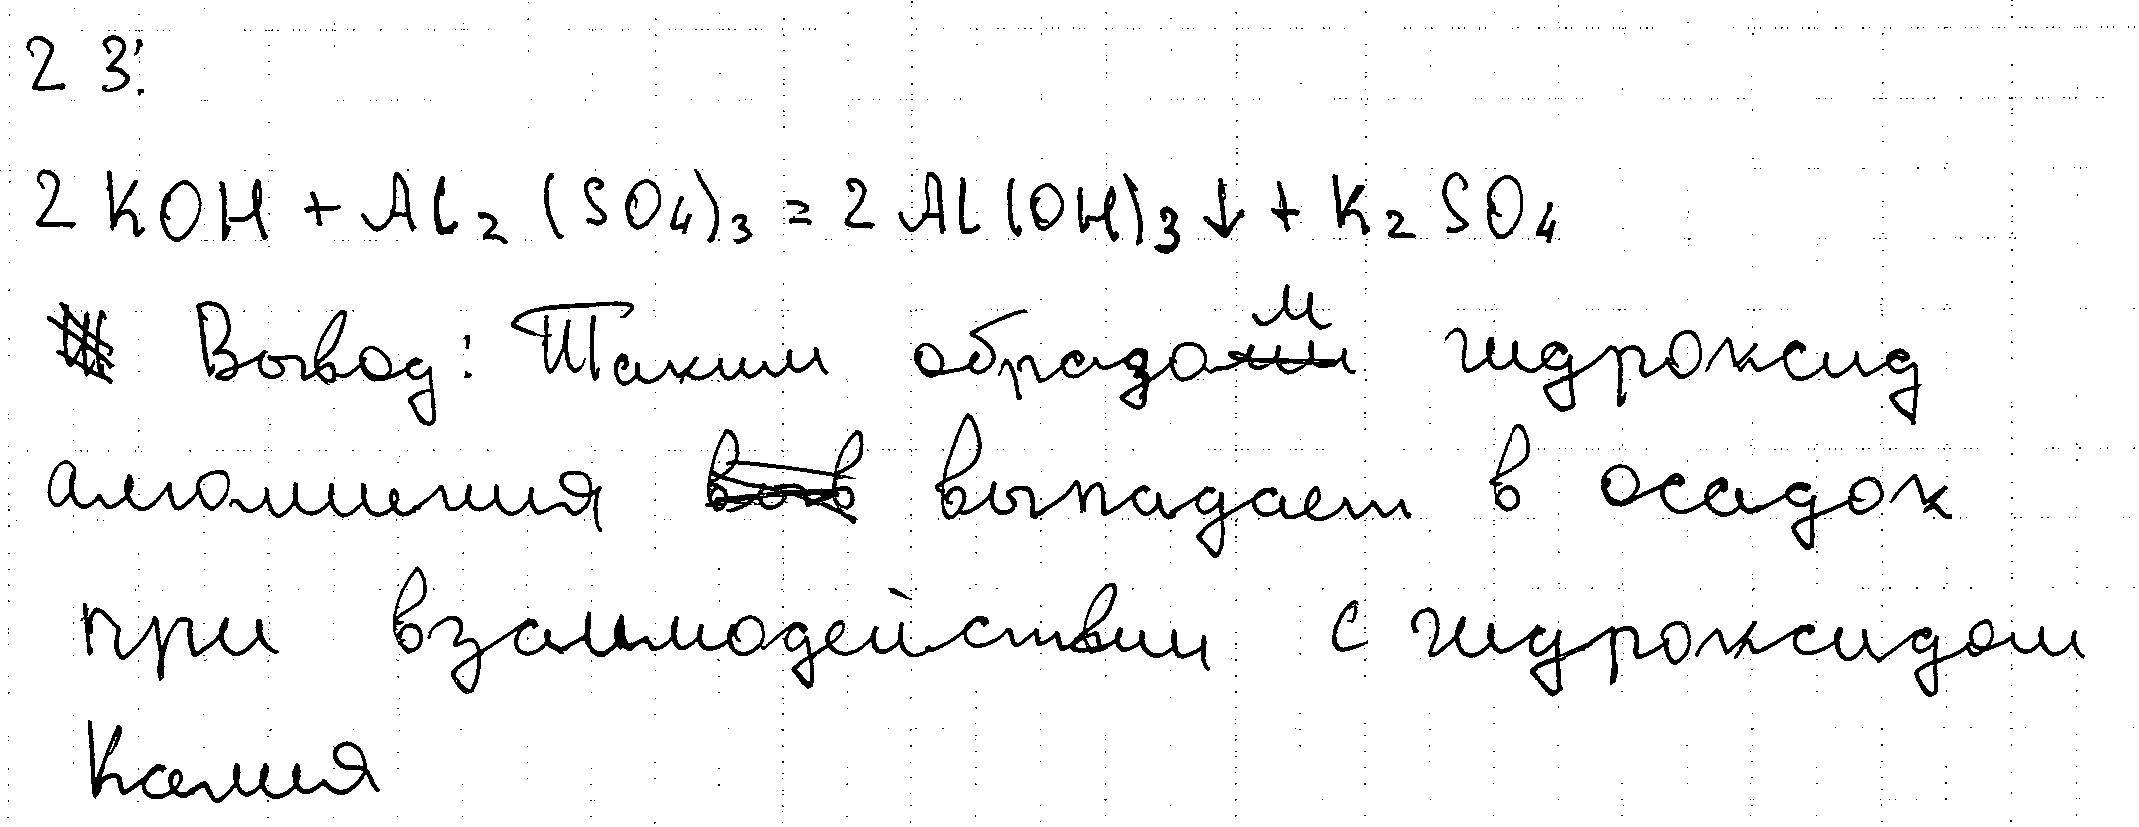 23:
2KOH + Al₂(SO₄)₃ = 2Al(OH)₃↓ + K₂SO₄
Вывод: Таким образом гидроксид
алюминия выпадает в осадок
при взаимодействии с гидроксидом
Калия